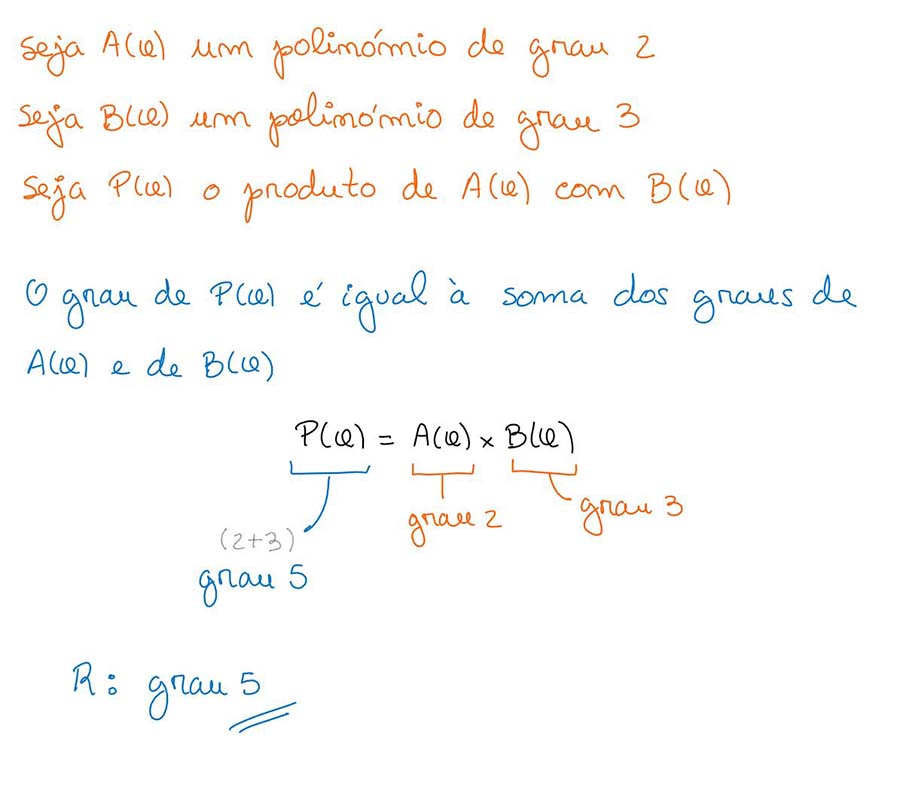 Seja A(x) um polinómio de grau 2
Seja B(x) um polinómio de grau 3
Seja P(x) o produto de A(x) com B(x)
O grau de P(x) é igual à soma dos graus de
A(x) e de B(x)
P(x) = A(x) × B(x)
grau 2
grau 3
(2+3)
grau 5
R: grau 5